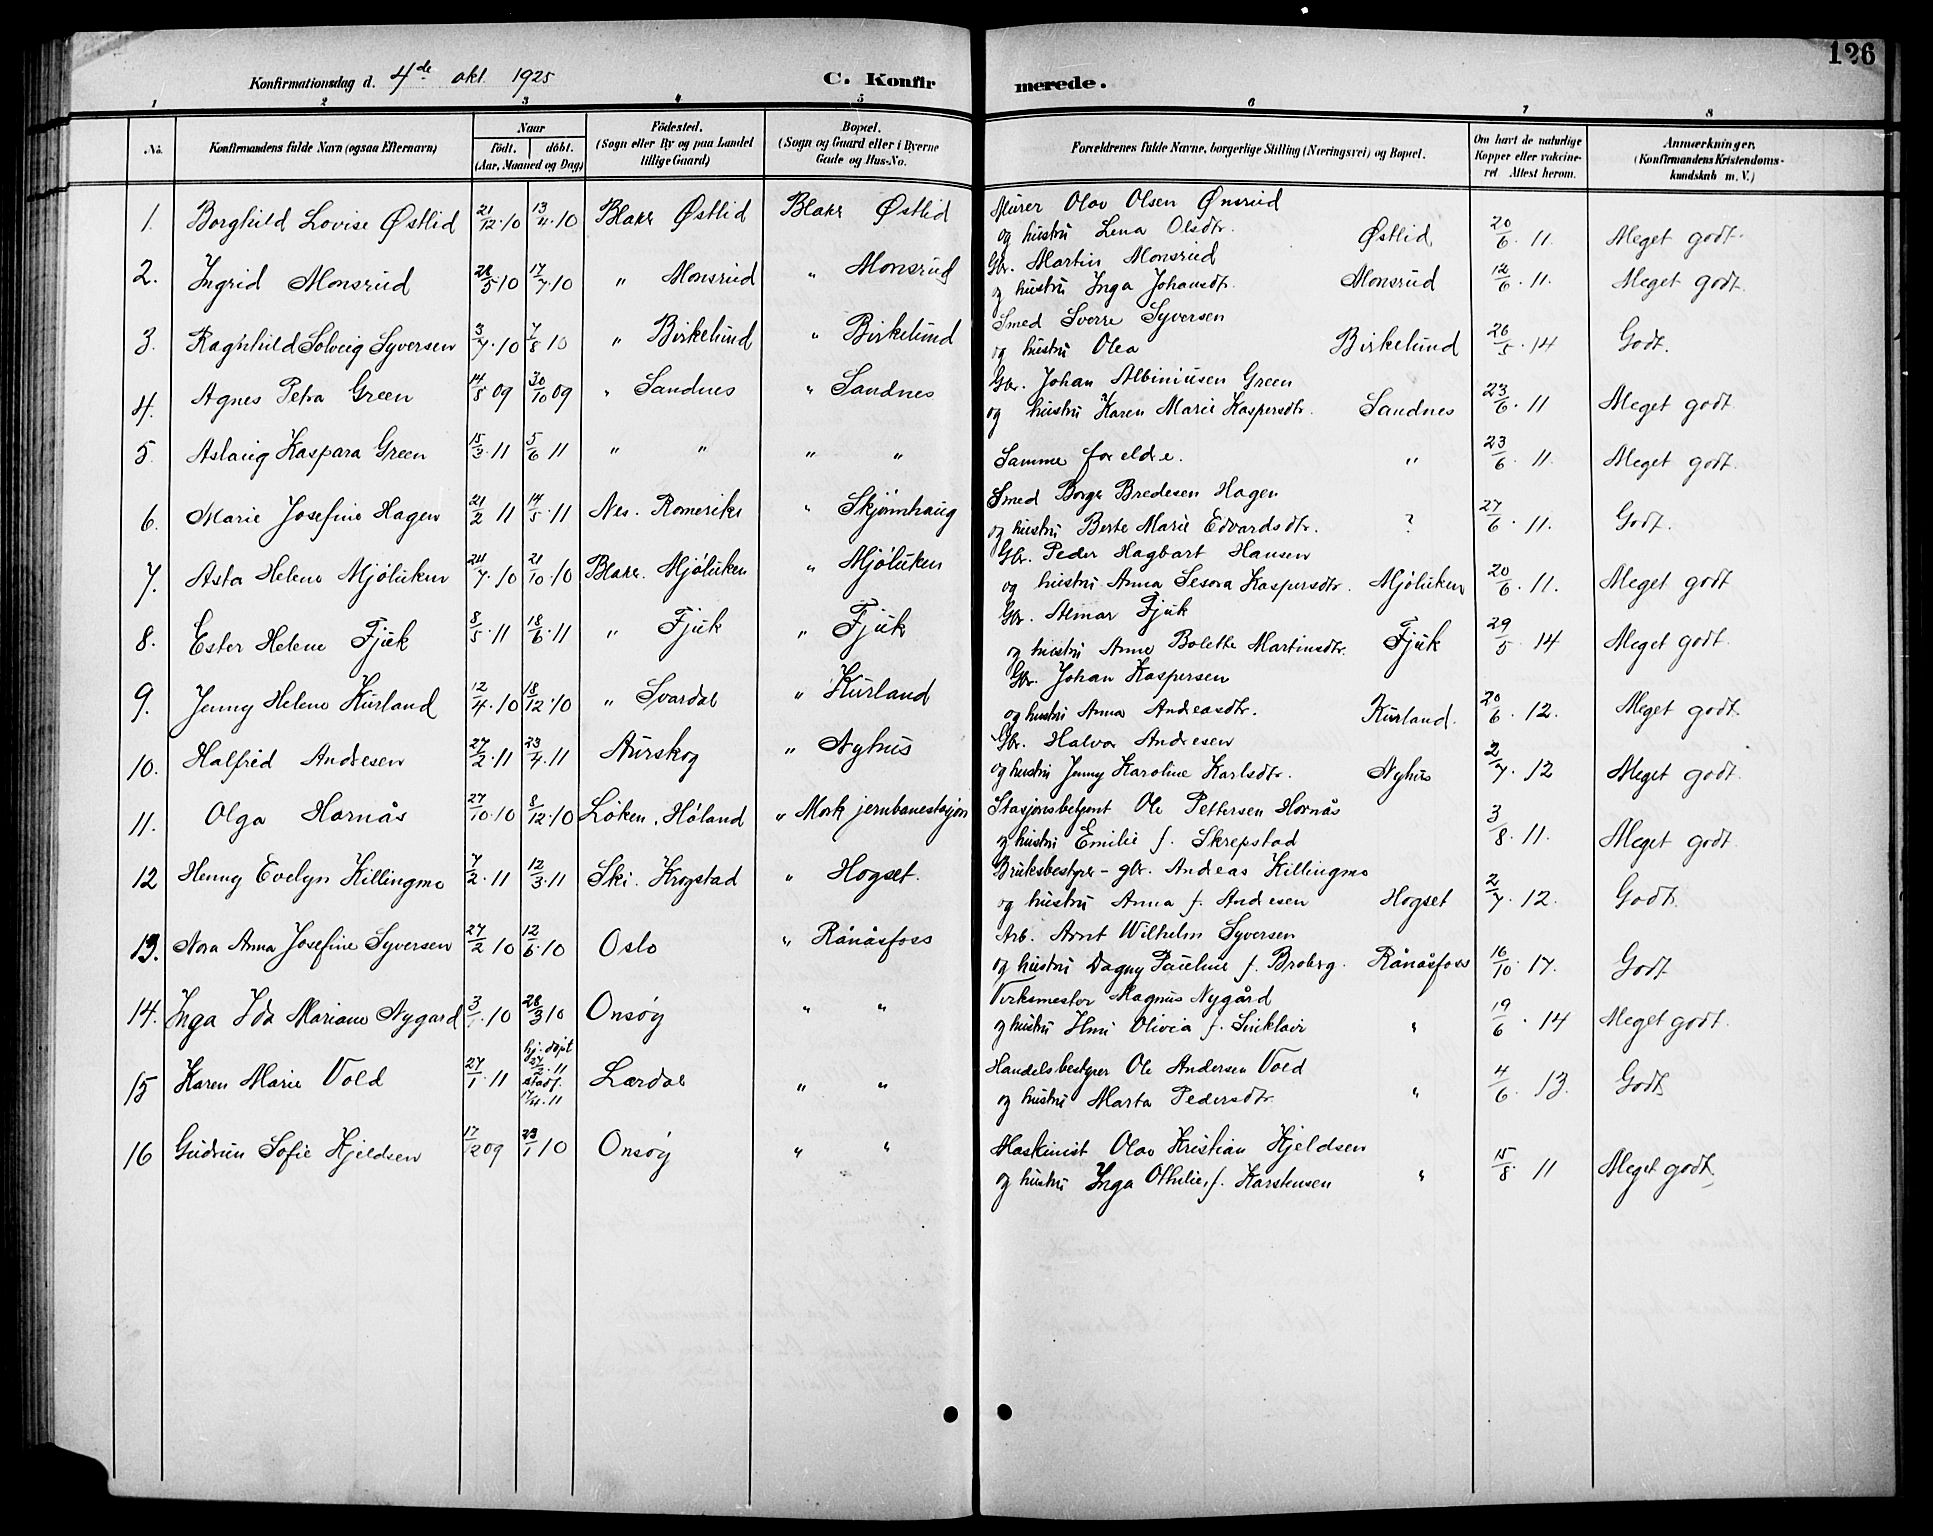 126
Konfirmationsdag d. 4de okt. 1925
C. Konfirmerede.
1 2 3 4 5 6 7 8
No.
Konfirmandens fulde Navn (ogsaa Efternavn)
Naar
födt. döbt.
(Aar, Maaned og Dag)
Födested.
(Sogn eller By og paa Landet
tillige Gaard)
Bopæl.
(Sogn og Gaard eller i Byerne
Gade og Hus-No.
Forældrenes fulde Navne, borgerlige Stilling (Næringsvei) og Bopæl.
Om havt de naturlige
Kopper eller vakcine-
ret Attest herom.
Anmærkninger,
(Konfirmandens Kristendoms-
kundskab m. V.)
1. Borghild Lovise Østlid 21/12.10 13/11.10 Blaker Østlid Blaker Østlid Murer Olav Olsen Ønsrud
og hustru Lena Olsdtr. Østlid 20/6.11. Meget godt.
2. Ingrid Monsrud 28/5 10 17/7.10 " Monsrud " Monsrud Gbr. Martin Monsrud
og hustru Inga Johansdtr. Monsrud 12/6.11. Meget godt.
3. Raghnhild Solveig Syversen 3/7.10 7/8 10 " Birkelund " Birkelund Smed Sverre Syversen
og hustru Olea Birkelund 26/5.14 Godt.
4. Agnes Petra Green 14/8 09 30/10 09 " Sandnes " Sandnes Gbr. Johan Albiniusen Green
og hustru Karen Marie Kaspersdtr. Sandnes 23/6.11 Meget godt
5. Aslaug Kaspara Green 15/3.11 5/6 11 " " " " Samme foreldre. " 23/6.11. Meget godt.
6. Marie Josefine Hagen 21/2 11 14/5.11 Nes. Romerike " Skjønhaug Smed Borger Bredesen Hagen
og hustru Berte Marie Edvardsdtr. ? 27/6.11. Godt.
7. Asta Helene Mjøluken 24/7.10 21/10.10 Blaker. Mjøluken " Mjøluken Gbr. Peder Hagbart Hansen
og hustru Anna Sesora Kaspersdtr. Mjøluken 20/6.11. Meget godt
8. Ester Helene Fjuk 8/5.11 18/6.11 " Fjuk " Fjuk Gbr. Almar Fjuk
og hustru Anne Bolette Martinsdtr. Fjuk 29/5 14 Meget godt.
9. Jenny Helene Kurland 12/4.10 18/12.10 " Svardal " Kurland Gbr. Johan Kaspersen
og hustru Anna Andreasdtr. Kurland. 20/6.12. Meget godt.
10. Halfrid Andresen 27/2.11 23/4.11 Aurskog " Nyhus Gbr. Halvor Andresen
og hustru Jenny Karoline Karlsdtr. Nyhus 2/7.12 Meget godt.
11. Olga Hornås 27/10.10 8/12.10 Løken, Høland " Mork jernbanestasjon Stasjonsbetjent Ole Pettersen Hornås
og hustru Emilie f. Skrepstad 3/8.11. Meget godt.
12 Henny Evelyn Killingmo 7/2.11 12/3.11 Ski. Krogstad " Hogset. Bruksbestyrer - gbr. Andreas Killingmo
og hustru Anna f. Andresen Hogset 2/7.12. Godt.
13. Nora Anna Josefine Syversen 27/2 10 12/6.10 Oslo " Rånåsfoss Arb. Arnt Wilhelm Syversen
og hustru Dagny Pauline f. Broberg. Rånåsfoss 16/10.17. Godt
14. Inga Ida Mariane Nygard 3/1.10 28/3 10 Onsøy " " Verksmester Magnus Nygård
og hustru Olivia f. Sinklair " 19/6.14 Meget godt.
15 Karen Marie Vold 27/1.11 hj.døpt 27/2.11 stadf. 17/4.11 Lærdal " " Handelsbestyrer Ole Andersen Vold
og hustru Marta Pedersdtr. " 4/6.13. Godt
16 Gudrun Sofie Kjeldsen 17/12 09 23/1 10 Onsøy " " Maskinist Olav Kristian Kjeldsen
og hustru Inga Othilie, f. Karstensen " 15/8.11 Meget godt.